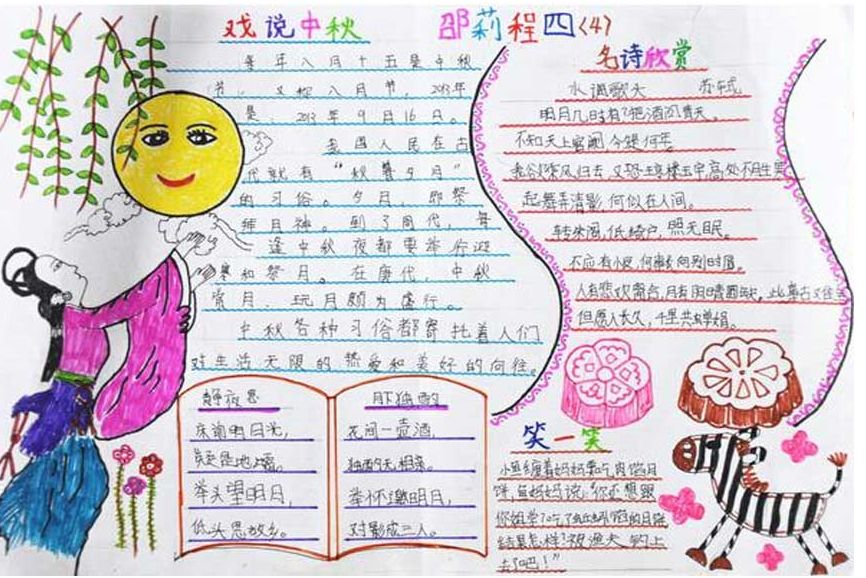 戏说中秋 邵莉程四(4)
每年八月十五是中秋
节，又称八月节，2013年
是，2013年9月16日。
我国人民在古
代就有“秋暮夕月”
的习俗。夕月，即祭
拜月神。到了周代，每
逢中秋夜都要举行迎
寒和祭月。在唐代，中秋
赏月、玩月颇为盛行。
中秋各种习俗都寄托着人们
对生活无限的热爱和美好的向往。
名诗欣赏
水调歌头 苏轼
明月几时有?把酒问青天。
不知天上宫阙,今夕是何年
我欲乘风归去,又恐琼楼玉宇,高处不胜寒
起舞弄清影,何似在人间。
转朱阁,低绮户,照无眠。
不应有恨,何事长向别时圆。
人有悲欢离合,月有阴晴圆缺,此事古又难全
但愿人长久,千里共婵娟。
静夜思
床前明月光，
疑是地上霜。
举头望明月，
低头思故乡。
月下独酌
花间一壶酒，
独酌无相亲。
举杯邀明月，
对影成三人。
笑一笑
小鱼缠着妈妈要吃肉馅月
饼,鱼妈妈说:“你还想跟
你姐学?吃了蚯蚓馅的月饼
结果怎样?被渔夫钓上
去了吧！”